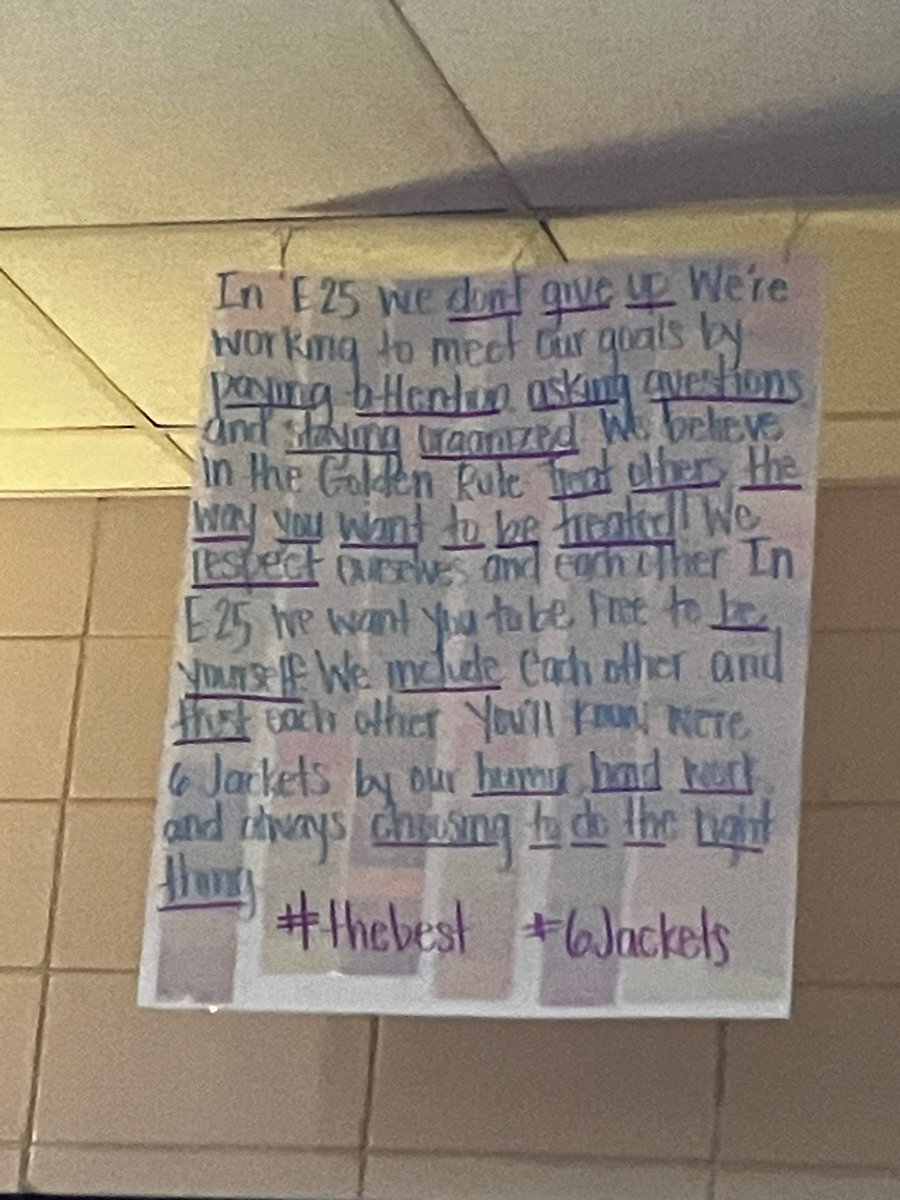 In E25 we don't give up We're
working to meet our goals by
paying attention asking questions
and staying organized We believe
in the Golden Rule treat others the
way you want to be treated! We
respect ourselves and each other In
E25 we want you to be free to be
yourself We include each other and
trust each other You'll know we're
6 Jackets by our humor, hard work
and always choosing to do the right
thing
#thebest #6Jackets